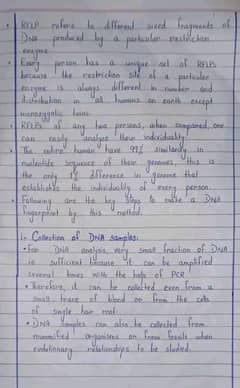 • RFLP refers to different sized fragments of
DNA produced by a particular restriction
enzyme.
• Every person has a unique set of RFLPs
because the restriction site of a particular
enzyme is always different in number and
distribution in all humans on earth except
monozygotic twins.
• RFLPs of any two persons, when compared, one
can easily their individuality.
• The entire human have 99% similarity in
nucleotide sequence of their genomes, this is
the only 1% difference in genome that
establishes the individuality of every person.
• Following are the key steps to make a DNA
fingerprint by this method.
i- Collection of DNA samples:
• For DNA analysis, very small fraction of DNA
is sufficient because it can be amplified
several times with the help of PCR.
• Therefore, it can be collected even from a
small trace of blood or from the cells
of single hair root.
• DNA samples can also be collected from
mummified organisms or from fossils when
evolutionary relationships to be studied.